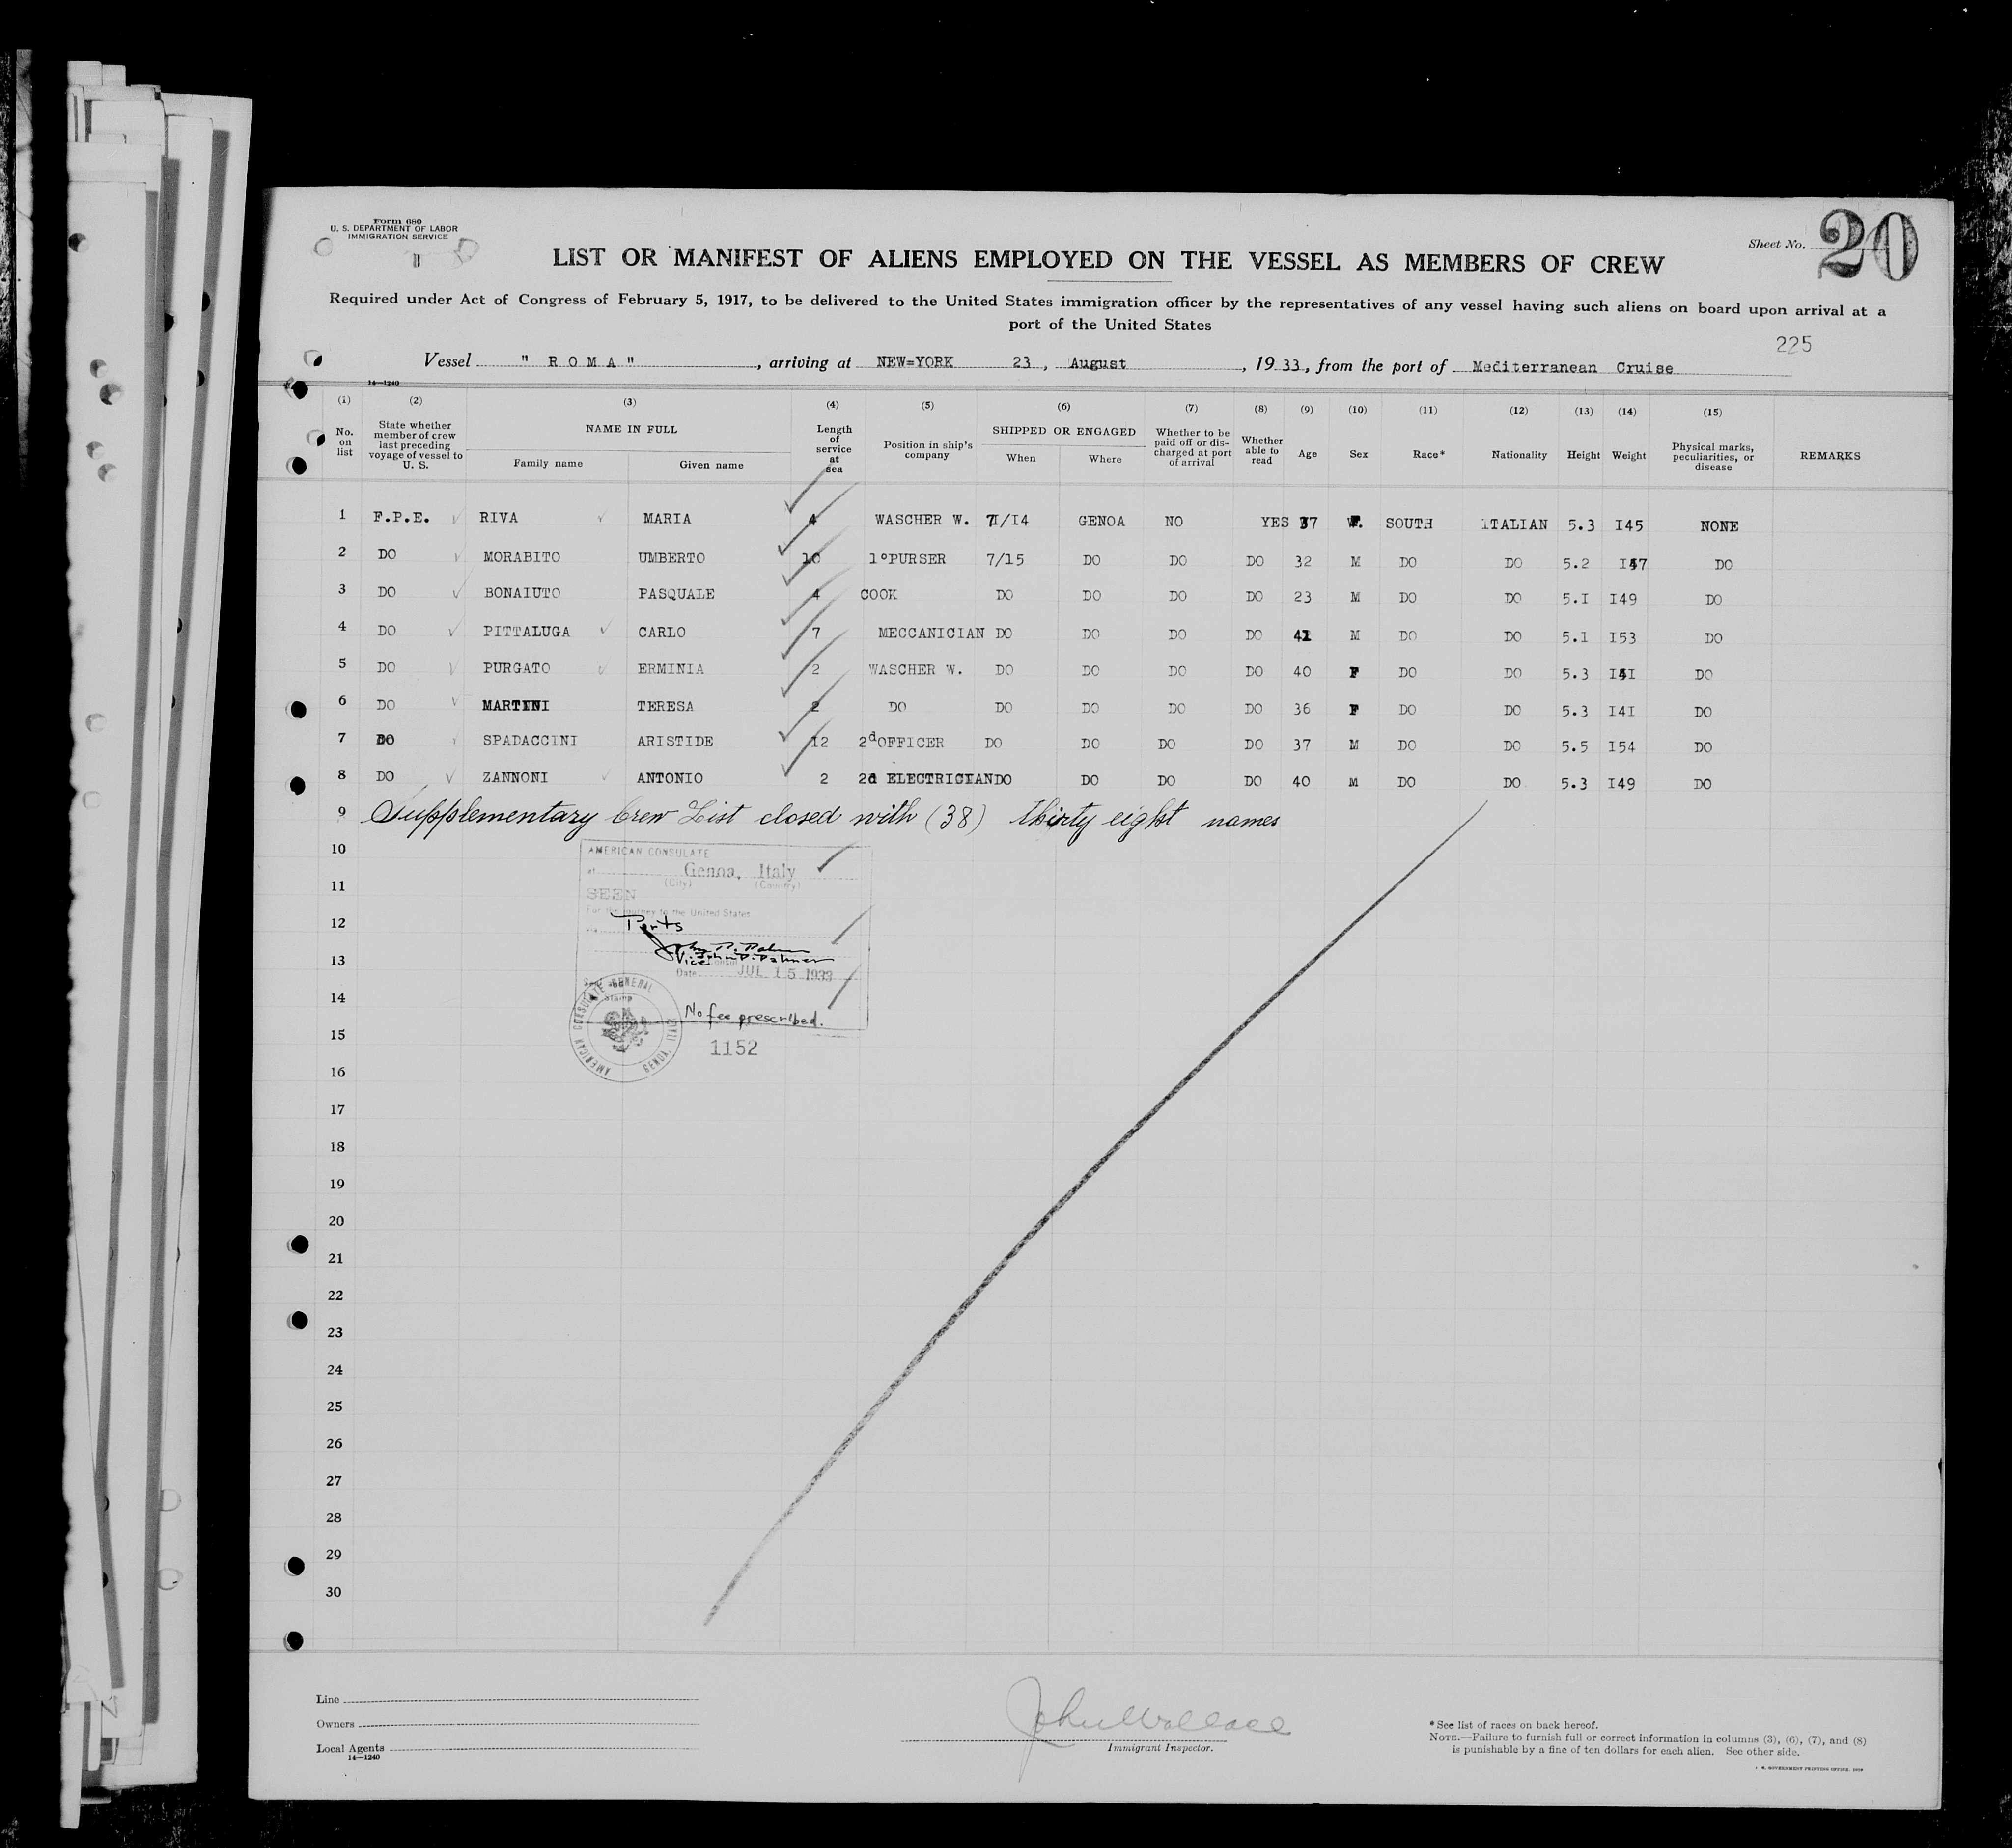 Form 680
U. S. DEPARTMENT OF LABOR
IMMIGRATION SERVICE
Sheet No. 20
LIST OR MANIFEST OF ALIENS EMPLOYED ON THE VESSEL AS MEMBERS OF CREW
Required under Act of Congress of February 5, 1917, to be delivered to the United States immigration officer by the representatives of any vessel having such aliens on board upon arrival at a
port of the United States
225
Vessel " R O M A " , arriving at NEW=YORK 23 , August , 19 33, from the port of Mediterranean Cruise
14—1240
(1) (2) (3) (4) (5) (6) (7) (8) (9) (10) (11) (12) (13) (14) (15)
No. on list State whether member of crew last preceding voyage of vessel to U. S. NAME IN FULL Family name Given name Length of service at sea Position in ship's company SHIPPED OR ENGAGED When Where Whether to be paid off or discharged at port of arrival Whether able to read Age Sex Race* Nationality Height Weight Physical marks, peculiarities, or disease REMARKS
1 F.P.E. RIVA MARIA 4 WASCHER W. 7/I4 GENOA NO YES 37 F. SOUTH ITALIAN 5.3 I45 NONE
2 DO MORABITO UMBERTO 10 1°PURSER 7/15 DO DO DO 32 M DO DO 5.2 I47 DO
3 DO BONAIUTO PASQUALE 4 COOK DO DO DO DO 23 M DO DO 5.I I49 DO
4 DO PITTALUGA CARLO 7 MECCANICIAN DO DO DO DO 41 M DO DO 5.I I53 DO
5 DO PURGATO ERMINIA 2 WASCHER W. DO DO DO DO 40 F DO DO 5.3 I4I DO
6 DO MARTINI TERESA 2 DO DO DO DO DO 36 F DO DO 5.3 I4I DO
7 DO SPADACCINI ARISTIDE 12 2dOFFICER DO DO DO DO 37 M DO DO 5.5 I54 DO
8 DO ZANNONI ANTONIO 2 2d ELECTRICIANDO DO DO DO 40 M DO DO 5.3 I49 DO
9 Supplementary Crew List closed with (38) thirty eight names
10
AMERICAN CONSULATE
at Genoa, Italy
(City) (Country)
11
SEEN
For the journey to the United States
12
Ports
John P. Palmer
13
Vice John P. Palmer
Date JUL 15 1933
14
Stamp
No fee prescribed.
AMERICAN CONSULATE GENERAL GENOA, ITALY
15
1152
16
17
18
19
20
21
22
23
24
25
26
27
28
29
30
Line
Owners
Local Agents
14—1240
John Wallace
Immigrant Inspector.
* See list of races on back hereof.
NOTE.—Failure to furnish full or correct information in columns (3), (6), (7), and (8)
is punishable by a fine of ten dollars for each alien. See other side.